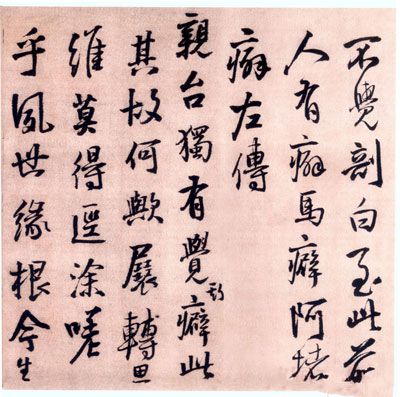 不覺剖白至此前
人有癖馬癖阿堵
癖左傳
親台獨有覺癖此
其故何歟展轉思
維莫得逕涂嗟
乎夙世緣根今生